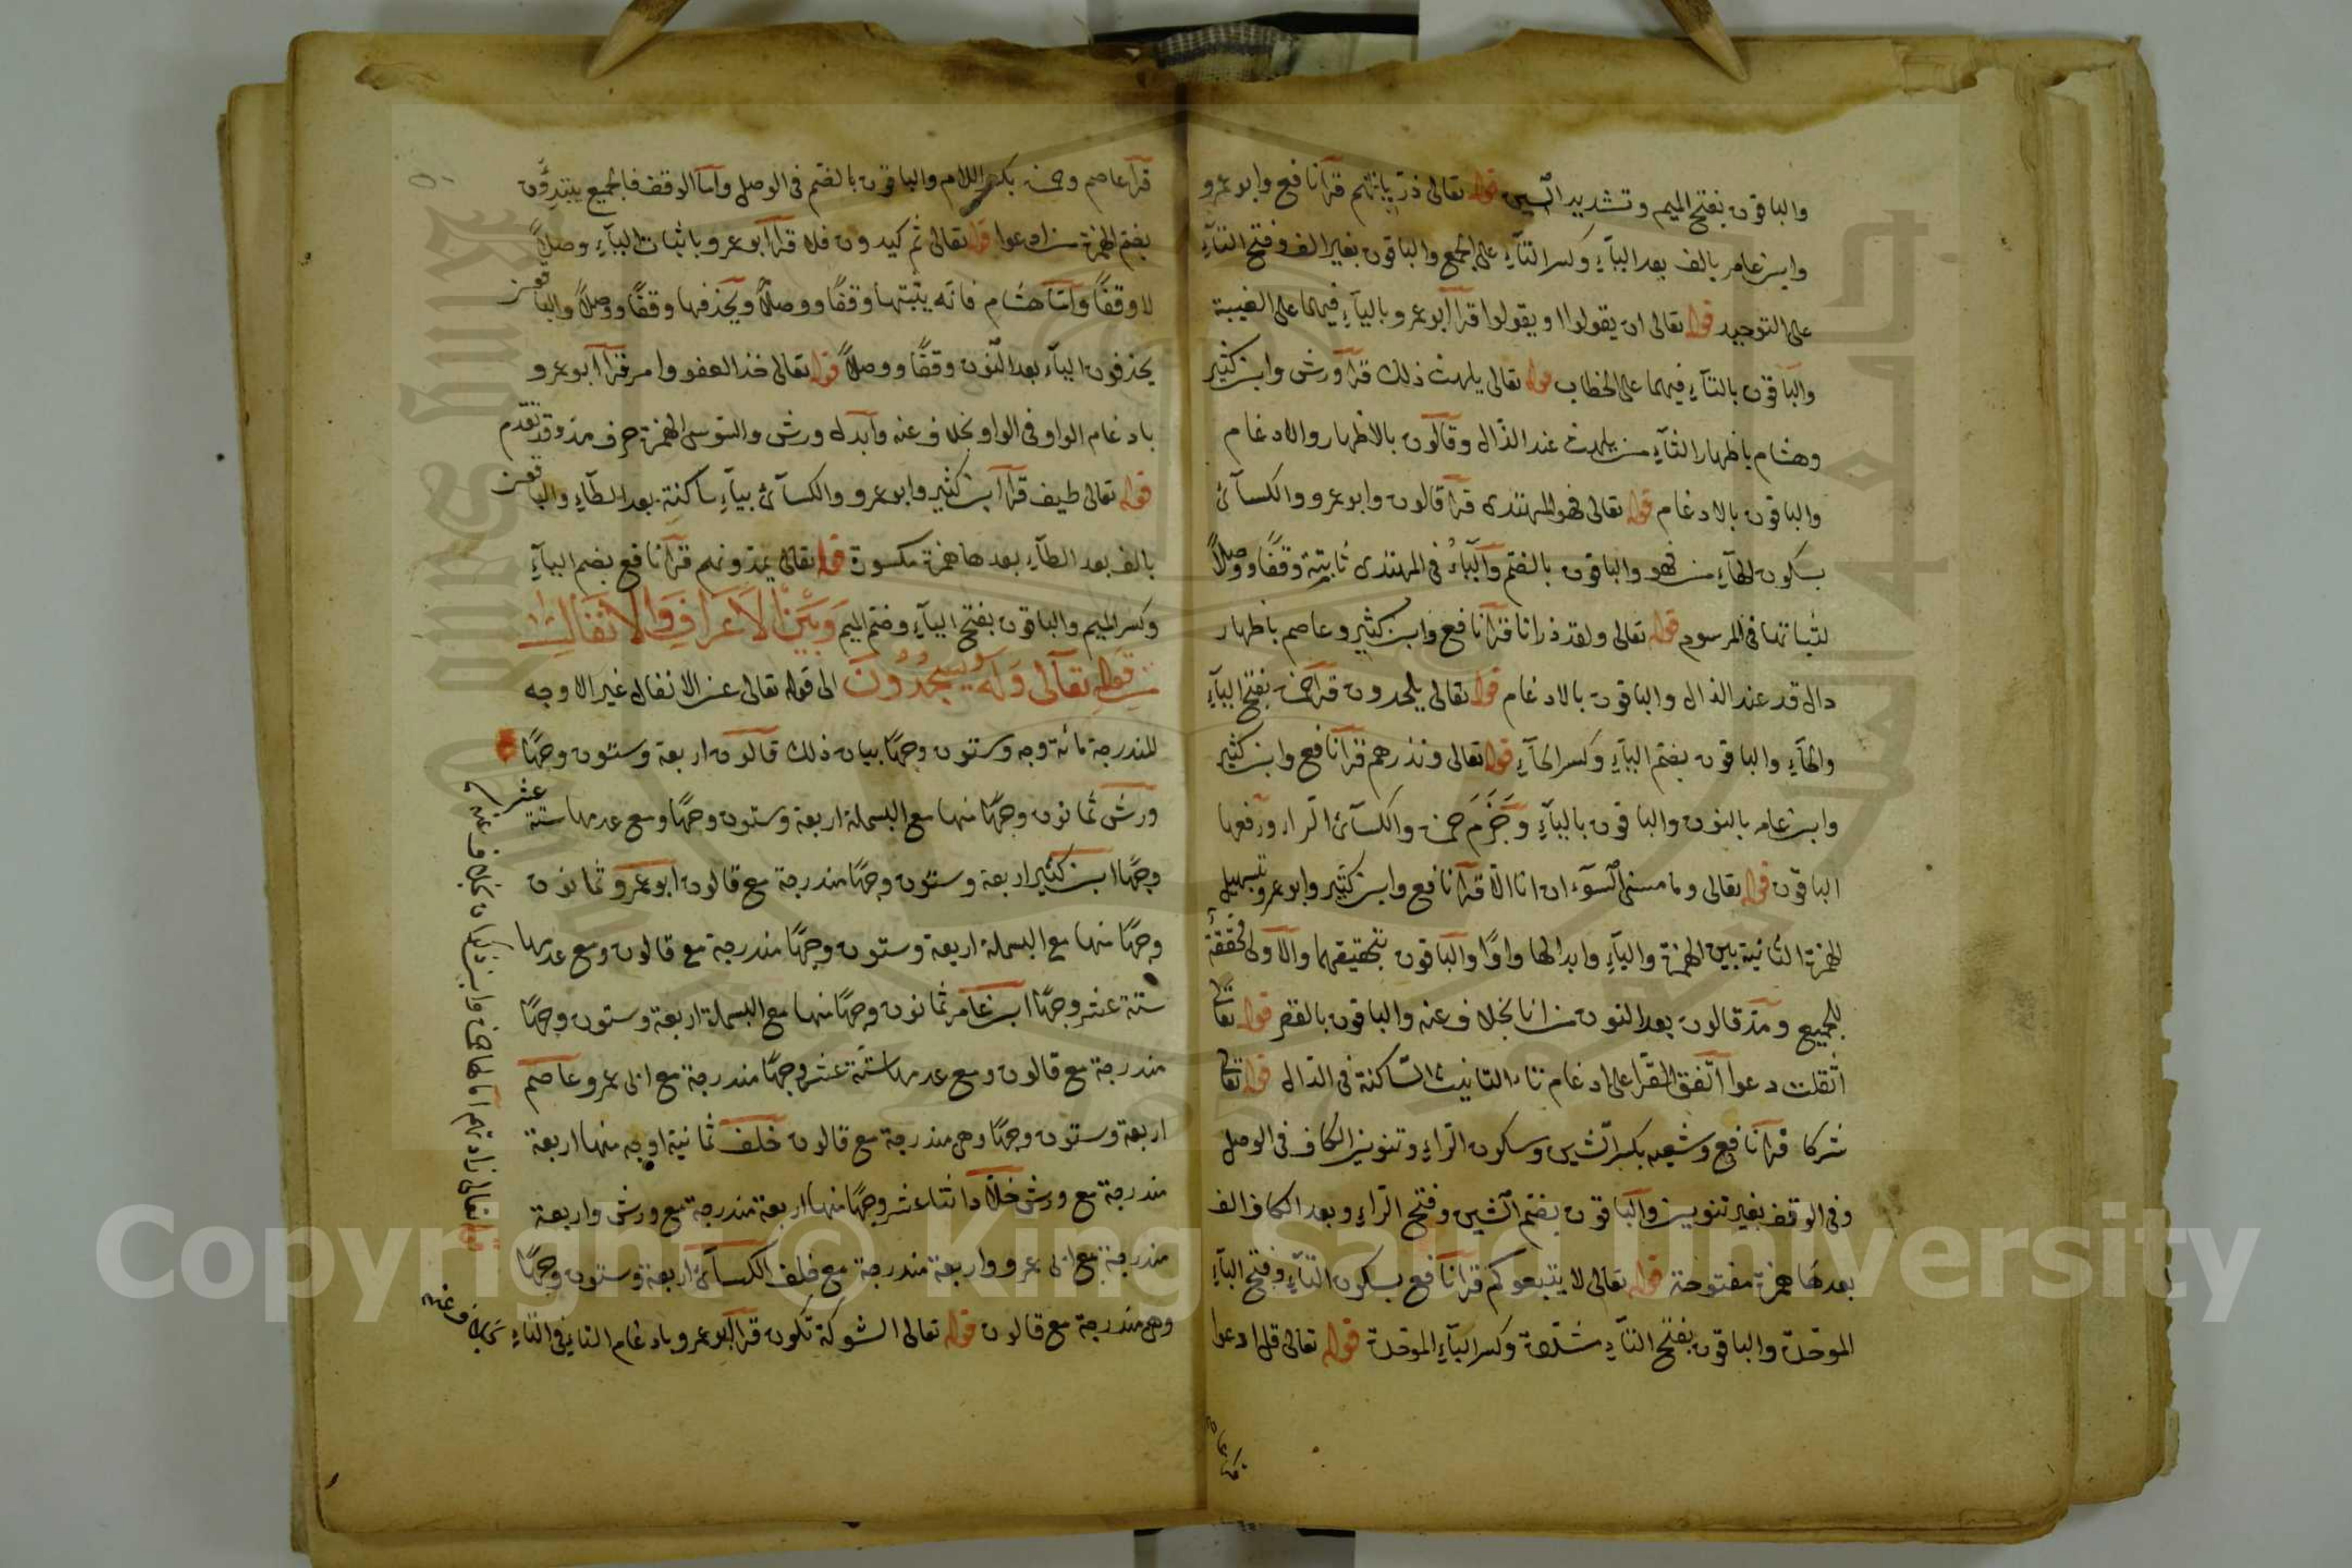 والباقون بفتح الميم وتشديد السين قوله تعالى ذرياتهم قرأ نافع وابوعمرو
وابن عامر بالف بعد الياء وكسر التاء على الجمع والباقون بغير الف وفتح التاء
على التوحيد قوله تعالى ان يقولوا او يقولوا قرأ ابوعمرو بالياء فيهما على الغيبة
والباقون بالتاء فيهما على الخطاب قوله تعالى يلهث ذلك قرأ ورش وابن كثير
وهشام باظهار الثاء من يلهث عند الذال وقالون بالاظهار والادغام
والباقون بالادغام قوله تعالى فهو المهتدى قرأ قالون وابوعمرو والكسائى
بسكون الهاء من فهو والباقون بالضم والياء فى المهتدى ثابتة وقفا ووصلا
لثباتها فى المرسوم قوله تعالى ولقد ذرانا قرأ نافع وابن كثير وعاصم باظهار
دال قد عند الذال والباقون بالادغام قوله تعالى يلحدون قرأ حمزة بفتح الياء
والحاء والباقون بضم الياء وكسر الحاء قوله تعالى ونذرهم قرأ نافع وابن كثير
وابن عامر بالنون والباقون بالياء وجزم حمزة والكسائى الراء ورفعها
الباقون قوله تعالى وما مسنى السوء ان انا الا قرأ نافع وابن كثير وابوعمرو بتسهيل
الهمزة الثانية بين الهمزة والياء وابدالها واوا والباقون بتحقيقهما والاولى محققة
للجميع ومد قالون بعد النون من انا بخلاف عنه والباقون بالقصر قوله تعالى
اثقلت دعوا اتفق القرا على ادغام تاء التانيث الساكنة فى الدال قوله تعالى
شركا قرأ نافع وشعبه بكسر الشين وسكون الراء وتنوين الكاف فى الوصل
وفى الوقف بغير تنوين والباقون بضم الشين وفتح الراء وبعد الكاف الف
بعدها همزة مفتوحة قوله تعالى لا يتبعوكم قرأ نافع بسكون التاء وفتح الباء
الموحدة والباقون بفتح التاء مشددة وكسر الباء الموحدة قوله تعالى قل ادعوا
قرأ عاصم وحمزة بكسر اللام والباقون بالضم فى الوصل واما الوقف فالجميع يبتدؤن
بضم الهمزة من ادعوا قوله تعالى ثم كيدون فلا قرأ ابوعمرو باثبات الياء وصلا
لا وقفا واما هشام فانه يثبتها وقفا ووصلا ويحذفها وقفا ووصلا والباقون
يحذفون الياء بعد النون وقفا ووصلا قوله تعالى خذ العفو وامر قرأ ابوعمرو
بادغام الواو فى الواو بخلاف عنه وابدل ورش والسوسى الهمزة حرف مد وقد تقدم
قوله تعالى طيف قرأ ابن كثير وابوعمرو والكسائى بياء ساكنة بعد الطاء والباقون
بالف بعد الطاء بعدها همزة مكسورة قوله تعالى يمدونهم قرأ نافع بضم الياء
وكسر الميم والباقون بفتح الياء وضم الميم وَبَيْنَ الْاَعْرَافِ وَالْاَنْفَالِ
من قوله تعالى وله يسجدون الى قوله تعالى عن الانفال غير الاوجه
المندرجة مائة وجه وستون وجها بيان ذلك قالون اربعة وستون وجها
ورش ثمانون وجها منها مع البسملة اربعة وستون وجها ومع عدمها ستة عشر
وجها ابن كثير اربعة وستون وجها مندرجة مع قالون ابوعمرو ثمانون
وجها منها مع البسملة اربعة وستون وجها مندرجة مع قالون ومع عدمها
ستة عشر وجها ابن عامر ثمانون وجها منها مع البسملة اربعة وستون وجها
مندرجة مع قالون ومع عدمها ستة عشر وجها مندرجة مع ابى عمرو عاصم
اربعة وستون وجها وهى مندرجة مع قالون خلف ثمانية اوجه منها اربعة
مندرجة مع ورش خلاد اثنا عشر وجها منها اربعة مندرجة مع ورش واربعة
مندرجة مع ابى عمرو واربعة مندرجة مع خلف الكسائى اربعة وستون وجها
وهى مندرجة مع قالون قوله تعالى الشوكة تكون قرأ ابوعمرو بادغام التا فى التاء بخلاف عنه
قوله تعالى زادتهم امالها حمزة وابن ذكوان بخلاف عنه
Copyright © King Saud University